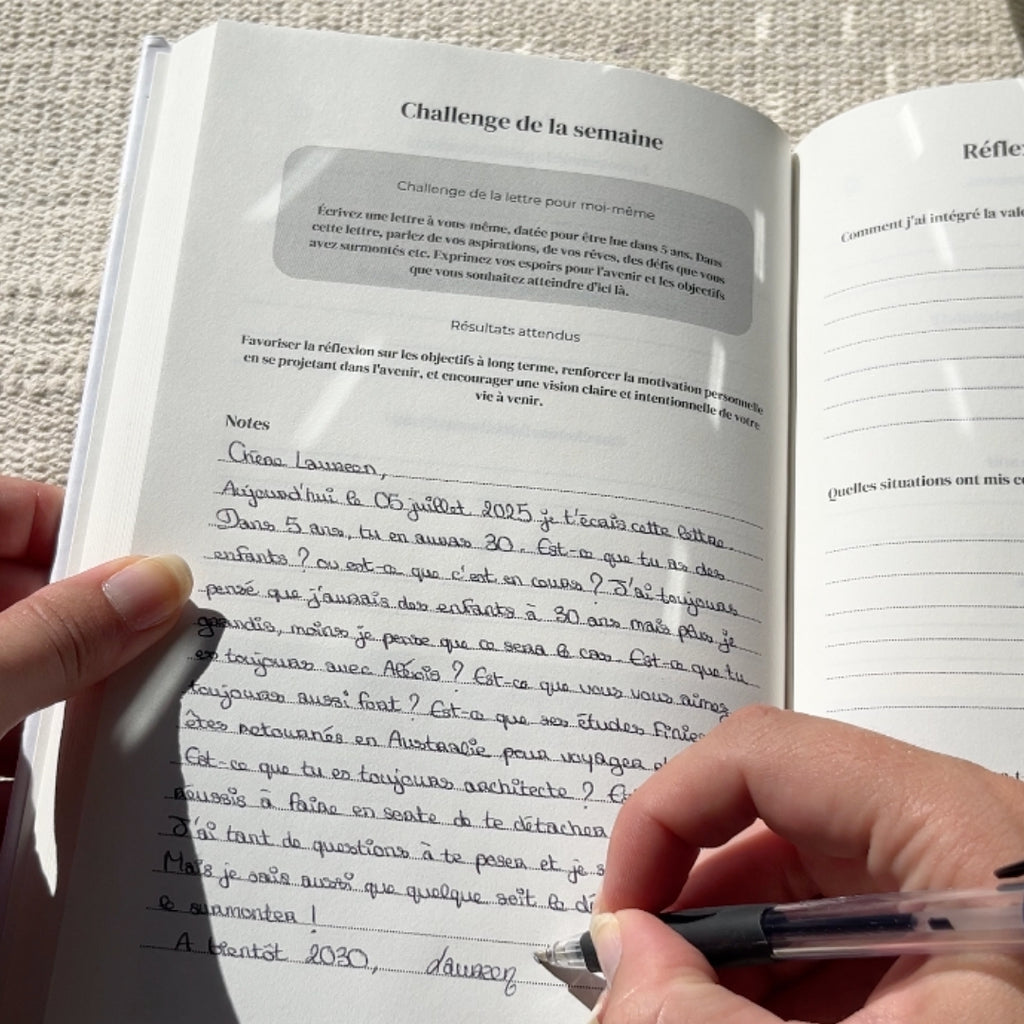 Challenge de la semaine
Challenge de la lettre pour moi-même
Écrivez une lettre à vous-même, datée pour être lue dans 5 ans. Dans
cette lettre, parlez de vos aspirations, de vos rêves, des défis que vous
avez surmontés etc. Exprimez vos espoirs pour l'avenir et les objectifs
que vous souhaitez atteindre d'ici là.
Résultats attendus
Favoriser la réflexion sur les objectifs à long terme, renforcer la motivation personnelle
en se projetant dans l'avenir, et encourager une vision claire et intentionnelle de votre
vie à venir.
Notes
Chère Laureen,
Aujourd'hui le 05 juillet 2025 je t'écris cette lettre.
Dans 5 ans, tu en auras 30. Est-ce que tu as des
enfants ? ou est-ce que c'est en cours ? J'ai toujours
pensé que j'aurais des enfants à 30 ans mais plus je
grandis, moins je pense que ce sera le cas. Est-ce que tu
es toujours avec ? Est-ce que vous vous aimez
toujours aussi fort ? Est-ce que ses études finies
êtes retournés en Australie pour voyager
Est-ce que tu es toujours architecte ?
réussis à faire en sorte de te détacher
J'ai tant de questions à te poser et je
Mais je sais aussi que quelque soit le
le surmonter !
A bientôt 2030, Laureen
Comment j'ai intégré la
Quelles situations ont mis